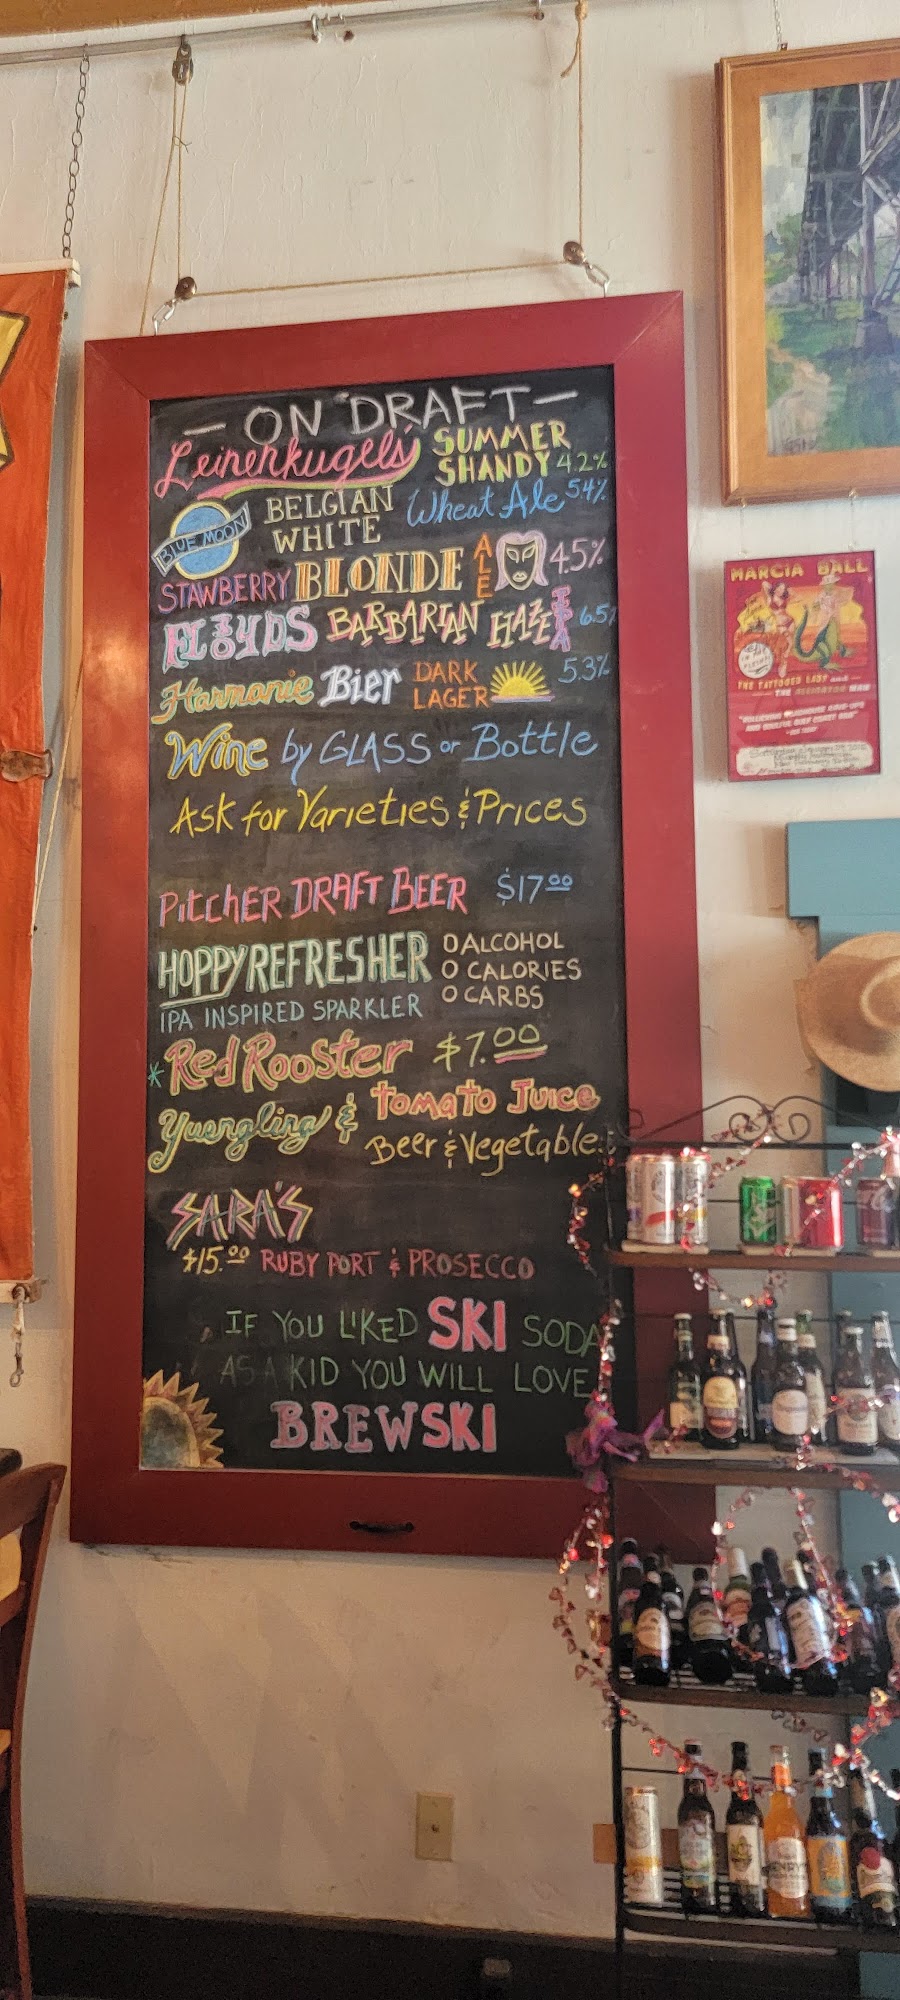 — ON DRAFT —
Leinenkugel's SUMMER SHANDY 4.2%
BLUE MOON BELGIAN WHITE Wheat Ale 5.4%
STAWBERRY BLONDE ALE 4.5%
FLOYDS BARBARIAN HAZE IPA 6.5%
Harmonie Bier DARK LAGER 5.3%
Wine by GLASS or Bottle
Ask for Varieties & Prices
PitcHER DRAFT BEER $17.00
HOPPY REFRESHER 0 ALCOHOL
0 CALORIES
IPA INSPIRED SPARKLER 0 CARBS
* Red Rooster $7.00
Yuengling & Tomato Juice
Beer & Vegetable
SARA'S
$15.00 RUBY PORT & PROSECCO
IF YOU LIKED SKI SODA
AS A KID YOU WILL LOVE
BREWSKI
MARCIA BALL
THE TATTOOED LADY and
THE ALLIGATOR MAN